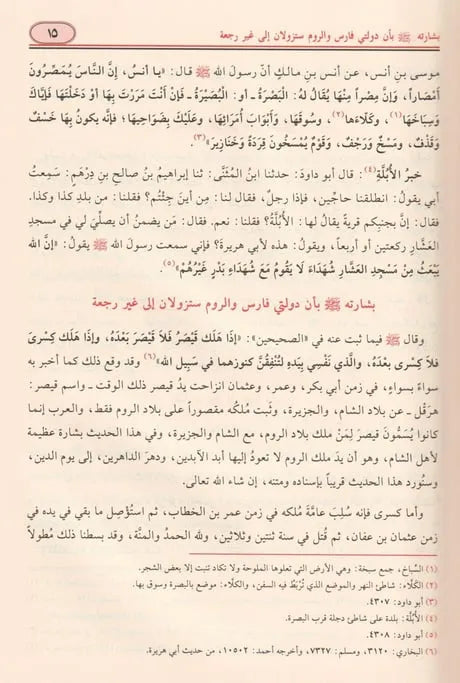 بشارته ﷺ بأن دولتي فارس والروم ستزولان إلى غير رجعة
١٥
موسى بنِ أنس، عن أنس بنِ مالكٍ أنّ رسولَ الله ﷺ قال: «يا أنسُ، إِنَّ النَّاسَ يُمَصِّرُونَ
أَمْصَاراً، وَإِنَّ مِصْراً مِنْهَا يُقَالُ لَهُ: الْبَصْرَةُ ـ أو: الْبُصَيْرَةُ ـ فَإِنْ أَنْتَ مَرَرْتَ بِهَا أَوْ دَخَلْتَهَا فَإِيَّاكَ
وَسِبَاخَهَا(١)، وَكَلَاءَهَا(٢)، وسُوقَهَا، وَأَبْوَابَ أُمَرَائِهَا، وعَلَيْكَ بِضَوَاحِيهَا؛ فإنَّه يكونُ بِهَا خَسْفٌ
وَقَذْفٌ، ومَسْخٌ وَرَجْفٌ، وَقَوْمٌ يُمْسَخُونَ قِرَدَةً وَخَنَازِيرَ»(٣).
خبرُ الأُبُلَّةِ(٤): قال أبو داودَ: حدثنا ابنُ المُثَنَّى: ثنا إبراهيمُ بنُ صالحِ بنِ دِرْهَمٍ: سَمِعتُ
أبي يقولُ: انطلقنا حاجِّين، فإذا رجلٌ، فقال لنا: مِن أينَ جِئْتُم؟ فقلنا: من بلدِ كذا وكذا.
فقال: إنَّ بجنبِكم قريةً يقالُ لها: الأُبُلَّةُ؟ فقلنا: نعم. فقال: مَن يضمنُ أن يصلِّيَ لي في مسجدِ
العَشَّارِ ركعتين أو أربعاً، ويقولُ: هذه لأبي هريرةَ؟ فإني سمعت رسولَ الله ﷺ يقولُ: «إِنَّ اللهَ
يَبْعَثُ مِنْ مَسْجِدِ العَشَّارِ شُهَدَاءَ لَا يَقُومُ مَعَ شُهَدَاءِ بَدْرٍ غَيْرُهُمْ»(٥).
بشارته ﷺ بأن دولتي فارس والروم ستزولان إلى غير رجعة
وقال ﷺ فيما ثبت عنه في «الصحيحين»: «إِذَا هَلَكَ قَيْصَرُ فَلَا قَيْصَرَ بَعْدَهُ، وإِذَا هَلَكَ كِسْرَى
فَلَا كِسْرَى بَعْدَهُ، والَّذي نَفْسِي بِيَدِهِ لَتُنْفَقَنَّ كنوزهما في سَبِيلِ الله»(٦) وقد وقع ذلك كما أخبر به
سواءً بسواءٍ، في زمن أبي بكر، وعمر، وعثمان انزاحت يدُ قيصر ذلك الوقت ـ واسم قيصر:
هرقل ـ عن بلاد الشام، والجزيرة، وثَبت مُلكُه مقصوراً على بلاد الروم فقط، والعرب إنما
كانوا يُسَمُّونَ قيصر لِمَنْ ملك بلاد الروم، مع الشام والجزيرة، وفي هذا الحديث بشارة عظيمة
لأهل الشام، وهو أن يدَ ملك الروم لا تعودُ إليها أبد الآبدين، ودهرَ الداهرين، إلى يوم الدين،
وسنُورد هذا الحديث قريباً بإسناده ومتنه، إن شاء الله تعالى.
وأما كسرى فإنه سُلِبَ عامَّةَ مُلكه في زمن عمر بن الخطاب، ثم استُؤصِل ما بقي في يده في
زمن عثمان بن عفان، ثم قُتل في سنة ثنتين وثلاثين، ولله الحمدُ والمنَّة، وقد بسطنا ذلك مُطولاً
(١) السِّباخ، جمع سبخة: وهي الأرض التي تعلوها الملوحة ولا تكاد تنبت إلا بعض الشجر.
(٢) الكَلَّاء: شاطئ النهر والموضع الذي تُرْبَطُ فيه السفن، والكلَّاء: موضع بالبصرة وسوق بها.
(٣) أبو داود: ٤٣٠٧.
(٤) الأُبُلَّة: بلدة على شاطئ دجلة قرب البصرة.
(٥) أبو داود: ٤٣٠٨.
(٦) البخاري: ٣١٢٠، ومسلم: ٧٣٢٧، وأخرجه أحمد: ١٠٥٠٢، من حديث أبي هريرة.